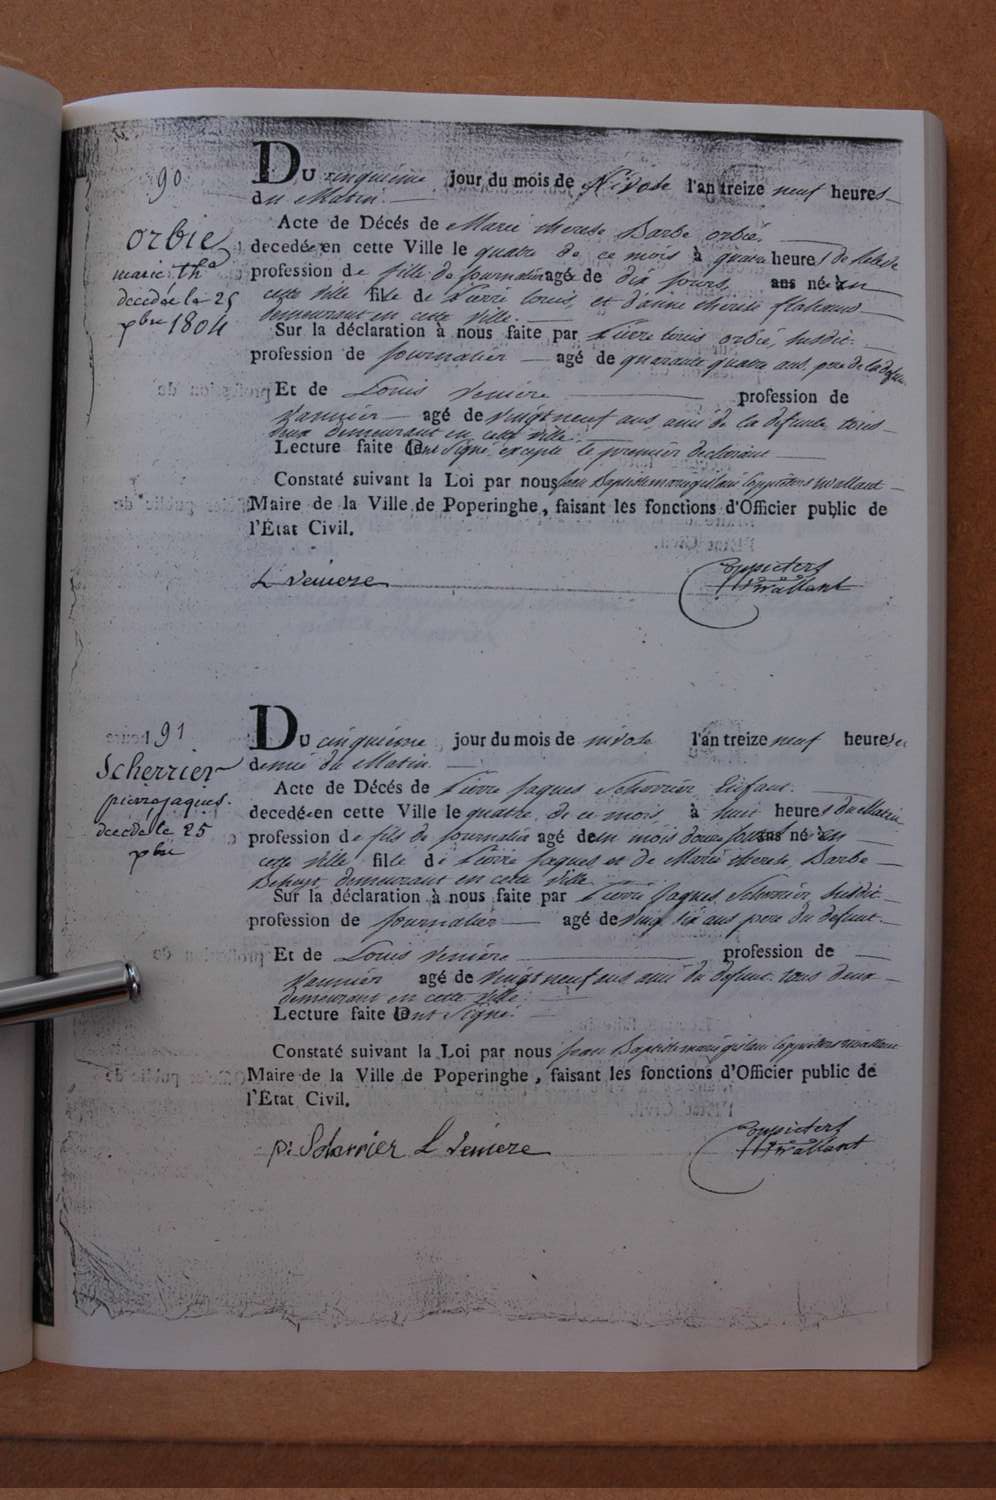 90
orbie
marie thª
decedée le 25
xbre 1804
Du cinquieme jour du mois de Nivose l'an treize neuf heures
du Matin.
Acte de Décés de Marie therese Barbe orbié
decedée en cette Ville le quatre de ce mois à quatre heures de
profession de fille de journalier agé de dix jours ans né en
cette ville fille de Pierre Louis, et d'anne therese
demeurant en cette ville.
Sur la déclaration à nous faite par Pierre Louis orbié, susdit.
profession de journalier agé de quarante quatre ans, pere de la
Et de Louis Veniere profession de
Vannier agé de vingt neuf ans, ami de la defunte, tous
deux demeurant en cette ville.
Lecture faite ont signé, excepté le premier declarant
Constaté suivant la Loi par nous Jean Baptiste Coppieters Wallant
Maire de la Ville de Poperinghe, faisant les fonctions d'Officier public de
l'État Civil.
L Veniere
Coppieters
Wallant
91
Scherrier
pierre jaques.
decede le 25
xbre
Du cinquieme jour du mois de nivose l'an treize neuf heures et
demie du Matin.
Acte de Décés de Pierre Jaques Scherrier Enfant.
decedé en cette Ville le quatre de ce mois, à huit heures du Matin
profession de fils de journalier agé de un mois douze jours ans né en
cette ville, fils de Pierre Jaques et de Marie therese, Barbe
demeurant en cette ville.
Sur la déclaration à nous faite par Pierre Jaques Scherrier susdit
profession de journalier agé de vingt six ans pere du defunt.
Et de Louis Veniere profession de
Vannier agé de vingt neuf ans ami du defunt. tous deux
demeurant en cette ville
Lecture faite ont signé.
Constaté suivant la Loi par nous Jean Baptiste Coppieters Wallant
Maire de la Ville de Poperinghe, faisant les fonctions d'Officier public de
l'État Civil.
pi Scherrier L Veniere
Coppieters
Wallant